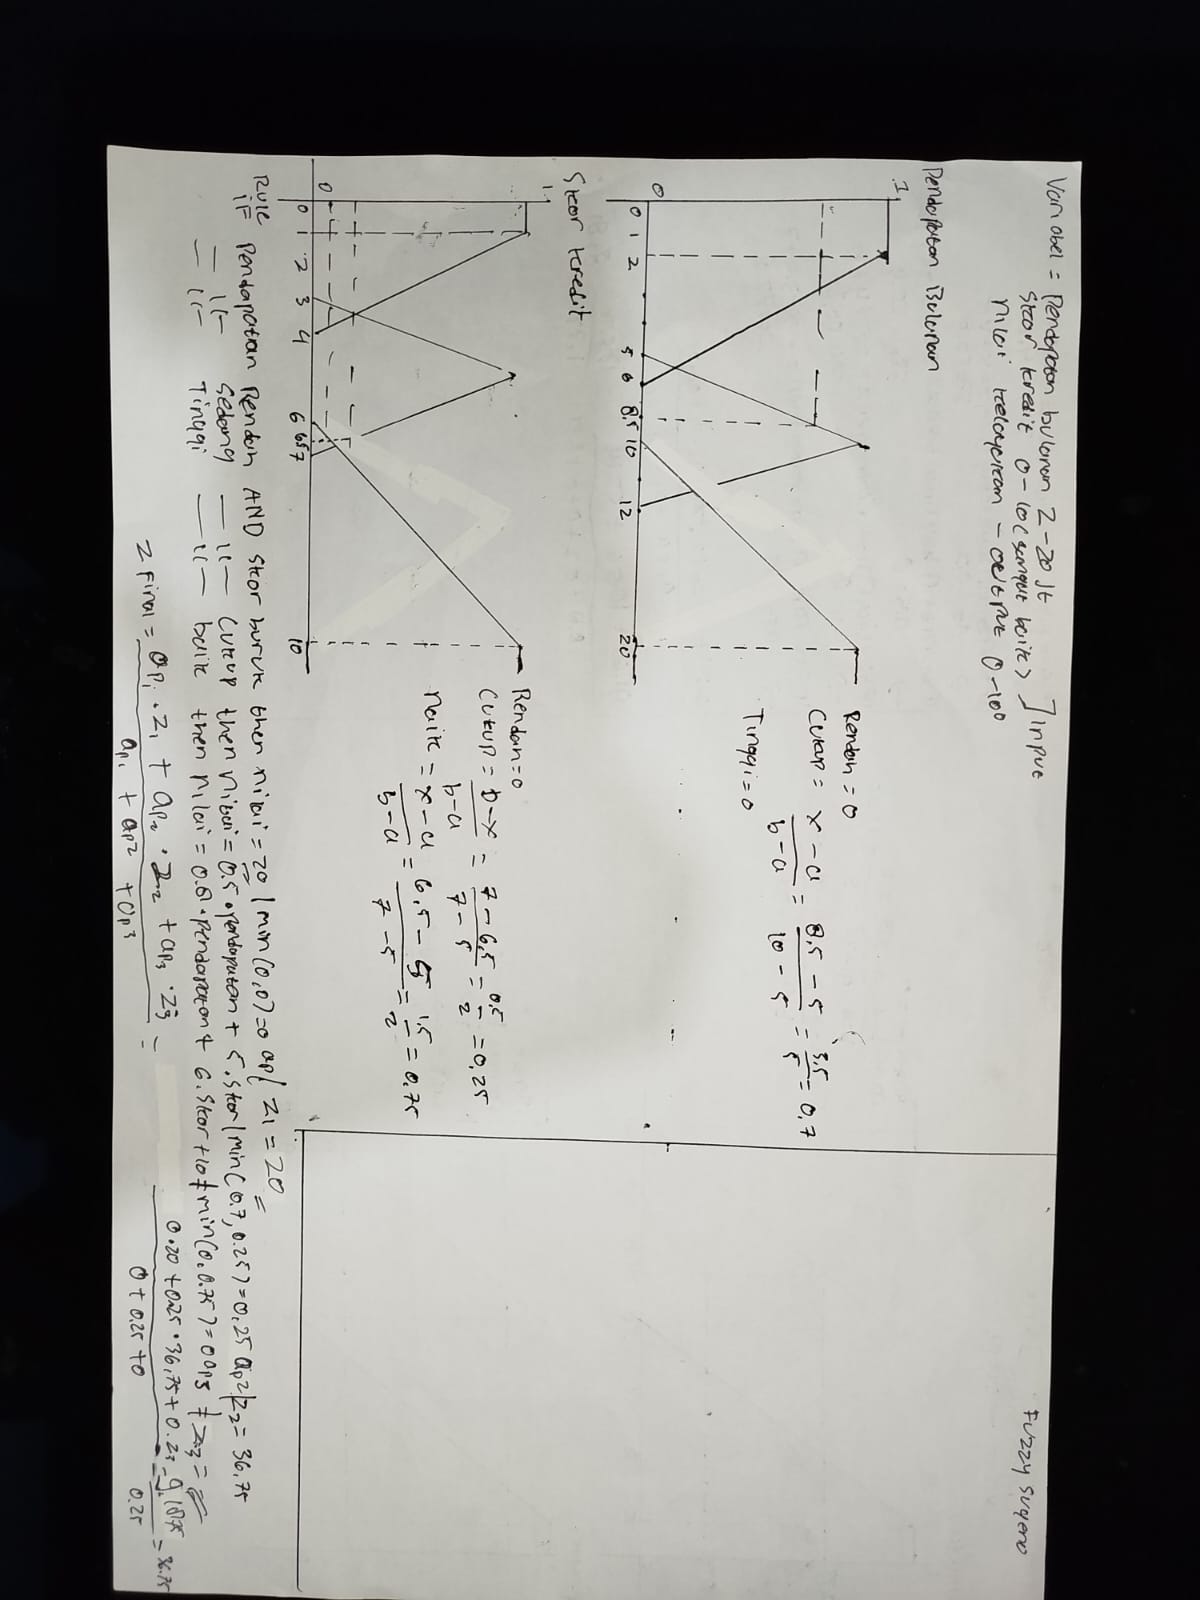 Fuzzy sugeno
Variabel = Pendapatan bulanan 2-20 Jt
Skor kredit 0-10 (sangat baik) ] Input
nilai kelayakan - output 0-100
Pendapatan Bulanan
1
0
0 1 2 5 6 8,5 10 12 20
Rendah = 0
Cukup = x-a / b-a = 8,5-5 / 10-5 = 3,5 / 5 = 0,7
Tinggi = 0
Skor kredit
1
0
0 1 2 3 4 6 6,5 7 10
Rendah = 0
Cukup = b-x / b-a = 7-6,5 / 7-5 = 0,5 / 2 = 0,25
naik = x-a / b-a = 6,5-5 / 7-5 = 1,5 / 2 = 0,75
Rule
iF Pendapatan Rendah AND skor buruk then nilai = 20 | min (0,0) = 0 ap1 z1 = 20
= 11 - Sedang = 11 - Cukup then nilai = 0.5 . pendapatan + 5 . skor | min (0.7, 0.25) = 0,25 ap2 | z2 = 36,75
= 11 - Tinggi = 11 - baik then nilai = 0.6 . pendapatan + 6 . skor + 10 | min (0, 0.75) = 0 ap3 | z3 =
z final = ap1 . z1 + ap2 . z2 + ap3 . z3 / ap1 + ap2 + ap3 = 0.20 + 0.25 . 36,75 + 0. z3 / 0 + 0.25 + 0 = 9,1875 / 0.25 = 36.75